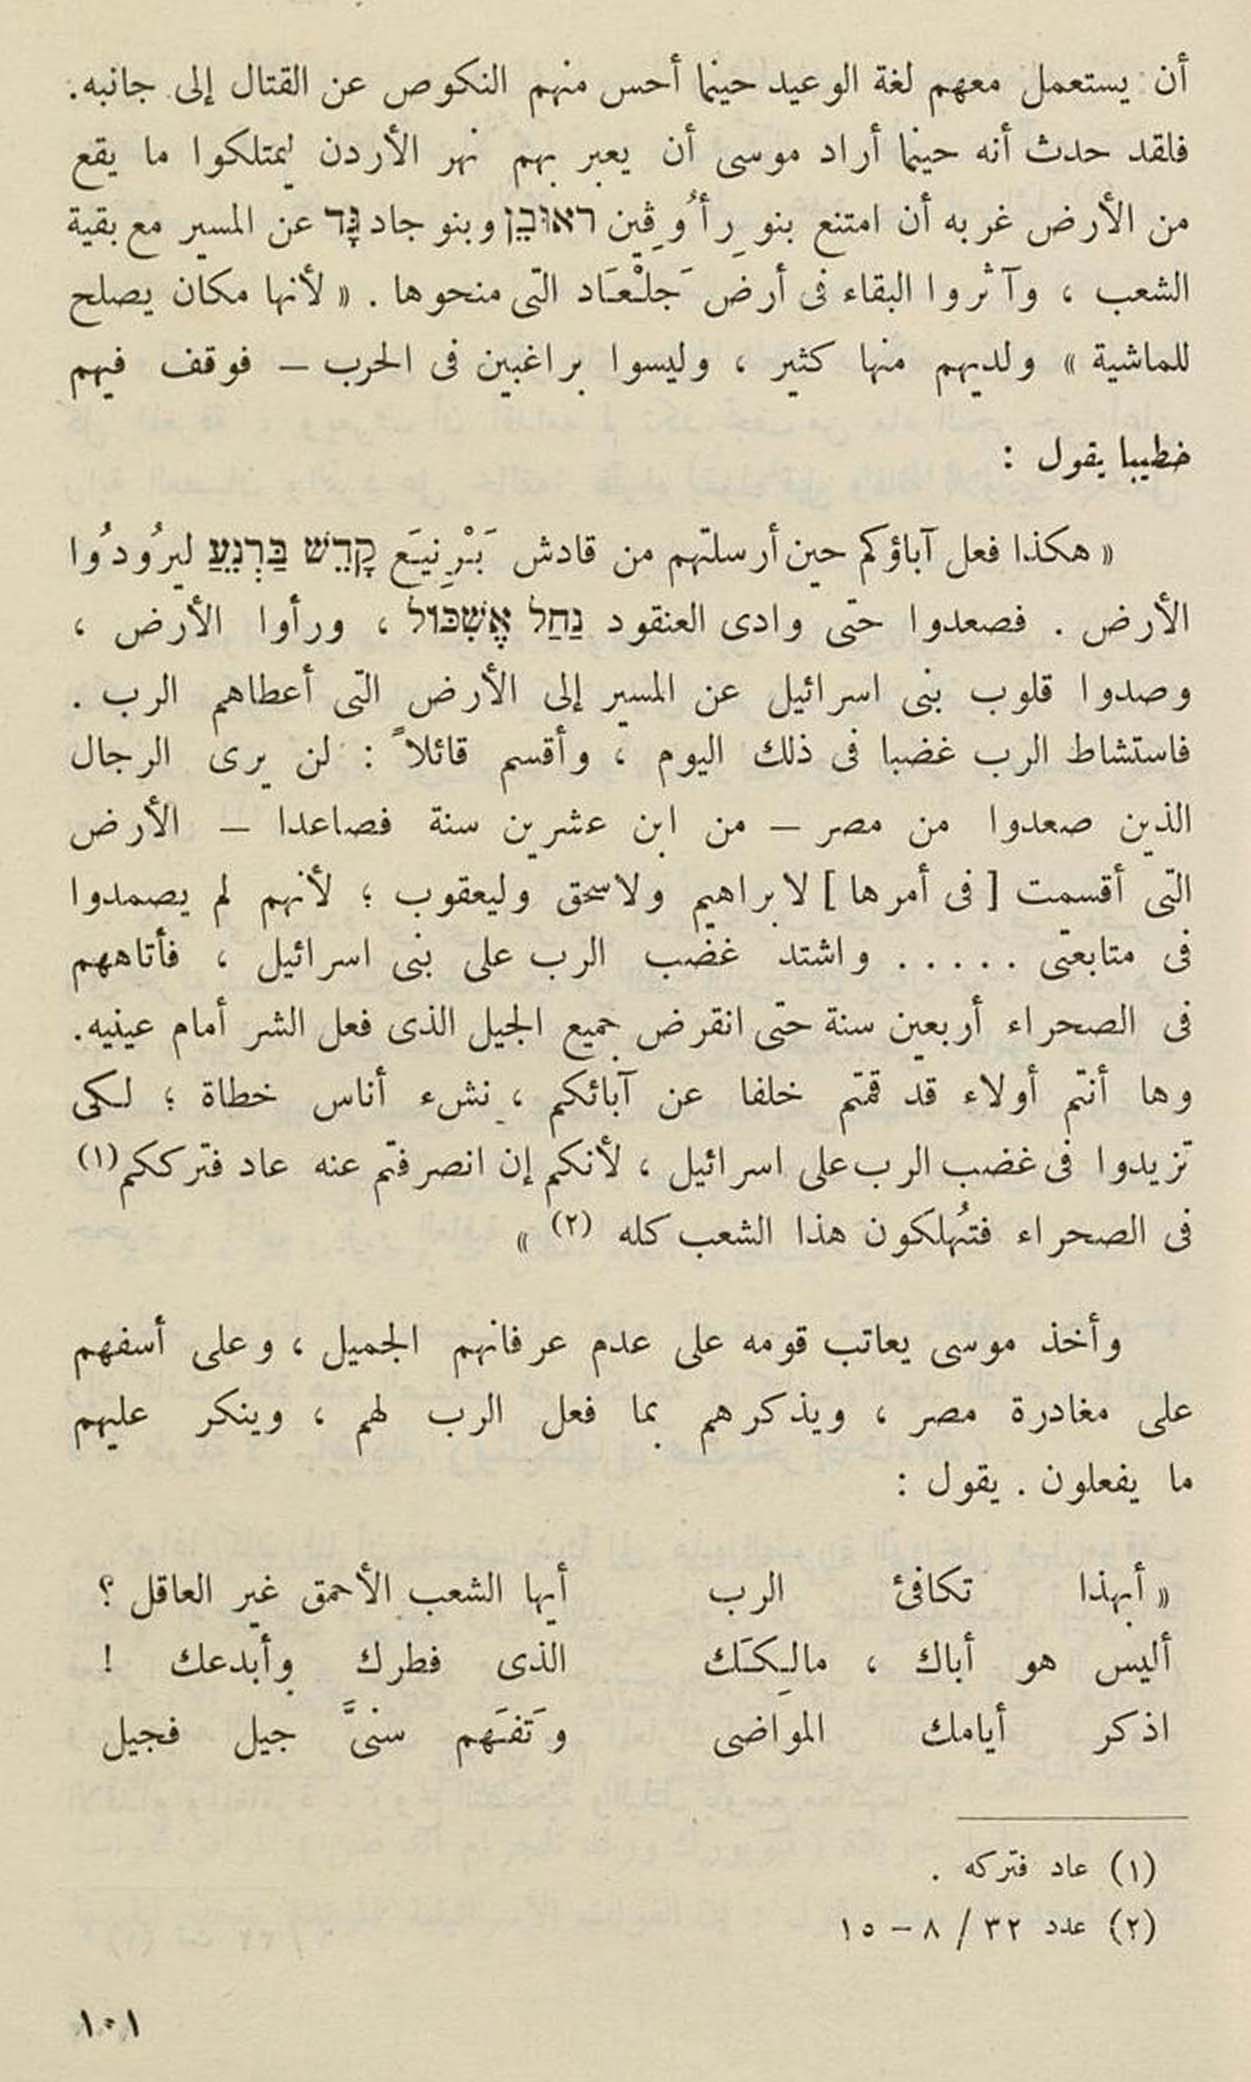 أن يستعمل معهم لغة الوعيد حينما أحس منهم النكوص عن القتال إلى جانبه.
فلقد حدث أنه حينما أراد موسى أن يعبر بهم نهر الأردن ليمتلكوا ما يقع
من الأرض غربه أن امتنع بنو رِأُوڤِين ראוּבֵן وبنو جاد גָּד عن المسير مع بقية
الشعب ، وآثروا البقاء فى أرض جَلْعَاد التى منحوها . « لأنها مكان يصلح
للماشية » ولديهم منها كثير ، وليسوا براغبين فى الحرب – فوقف فيهم
خطيبا يقول :
« هكذا فعل آباؤكم حين أرسلتهم من قادش بَرْنِيَع קָדֵשׁ בַּרְנֵעַ ليرُودُوا
الأرض . فصعدوا حتى وادى العنقود נַחַל אֶשְׁכּוֹל ، ورأوا الأرض ،
وصدوا قلوب بنى اسرائيل عن المسير إلى الأرض التى أعطاهم الرب .
فاستشاط الرب غضبا فى ذلك اليوم ، وأقسم قائلاً : لن يرى الرجال
الذين صعدوا من مصر – من ابن عشرين سنة فصاعدا – الأرض
التى أقسمت [ فى أمرها ] لابراهيم ولاسحق وليعقوب ؛ لأنهم لم يصمدوا
فى متابعتى . . . . . واشتد غضب الرب على بنى اسرائيل ، فأتاههم
فى الصحراء أربعين سنة حتى انقرض جميع الجيل الذى فعل الشر أمام عينيه.
وها أنتم أولاء قد قمتم خلفا عن آبائكم ، نشء أناس خطاة ؛ لكى
تزيدوا فى غضب الرب على اسرائيل ، لأنكم إن انصرفتم عنه عاد فترككم (١)
فى الصحراء فتُهلكون هذا الشعب كله (٢) »
وأخذ موسى يعاتب قومه على عدم عرفانهم الجميل ، وعلى أسفهم
على مغادرة مصر ، ويذكرهم بما فعل الرب لهم ، وينكر عليهم
ما يفعلون . يقول :
« أبهذا تكافئ الرب أيها الشعب الأحمق غير العاقل ؟
أليس هو أباك ، مالِكَك الذى فطرك وأبدعك !
اذكر أيامك المواضى وتَفَهم سنىَّ جيل فجيل
(١) عاد فتركه .
(٢) عدد ٣٢ / ٨ – ١٥
١٠١